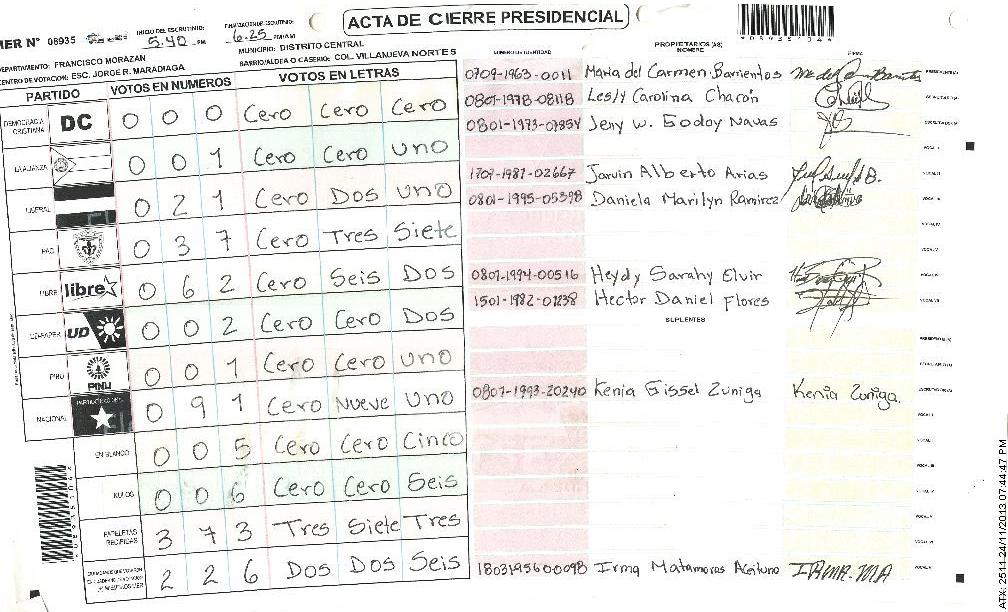 ACTA DE CIERRE PRESIDENCIAL
MER N° 08935
INICIO DEL ESCRUTINIO: 5:40 PM
FINALIZACION DE ESCRUTINIO: 6:25 PM/AM
DEPARTAMENTO: FRANCISCO MORAZAN
MUNICIPIO: DISTRITO CENTRAL
CENTRO DE VOTACION: ESC. JORGE R. MARADIAGA
BARRIO/ALDEA O CASERIO: COL. VILLANUEVA NORTE S
PARTIDO VOTOS EN NUMEROS VOTOS EN LETRAS
DEMOCRACIA CRISTIANA DC 0 0 0 Cero Cero Cero
LA ALIANZA 0 0 1 Cero Cero Uno
LIBERAL 0 2 1 Cero Dos Uno
PAC 0 3 7 Cero Tres Siete
LIBRE libre 0 6 2 Cero Seis Dos
UD-FAPER UD 0 0 2 Cero Cero Dos
PINU PINU 0 0 1 Cero Cero Uno
NACIONAL 0 9 1 Cero Nueve Uno
EN BLANCO 0 0 5 Cero Cero Cinco
NULOS 0 0 6 Cero Cero Seis
PAPELETAS RECIBIDAS 3 7 3 Tres Siete Tres
2 2 6 Dos Dos Seis
NUMERO DE IDENTIDAD PROPIETARIOS (AS) NOMBRE FIRMA
0709-1963-0011 Maria del Carmen Barrientos
0801-1978-08118 Lesly Carolina Charón
0801-1973-07854 Jeny W. Godoy Navas
1709-1987-02667 Jarvin Alberto Arias
0801-1995-05398 Daniela Marilyn Ramirez
0801-1994-00516 Heydy Sarahy Elvir
1501-1982-01238 Hector Daniel Flores
SUPLENTES
0801-1993-20240 Kenia Gissel Zuniga Kenia Zuniga.
1803195600098 Irma Matamoros Aceituno
ATX: 2511-24/11/2013 07:44:47 PM